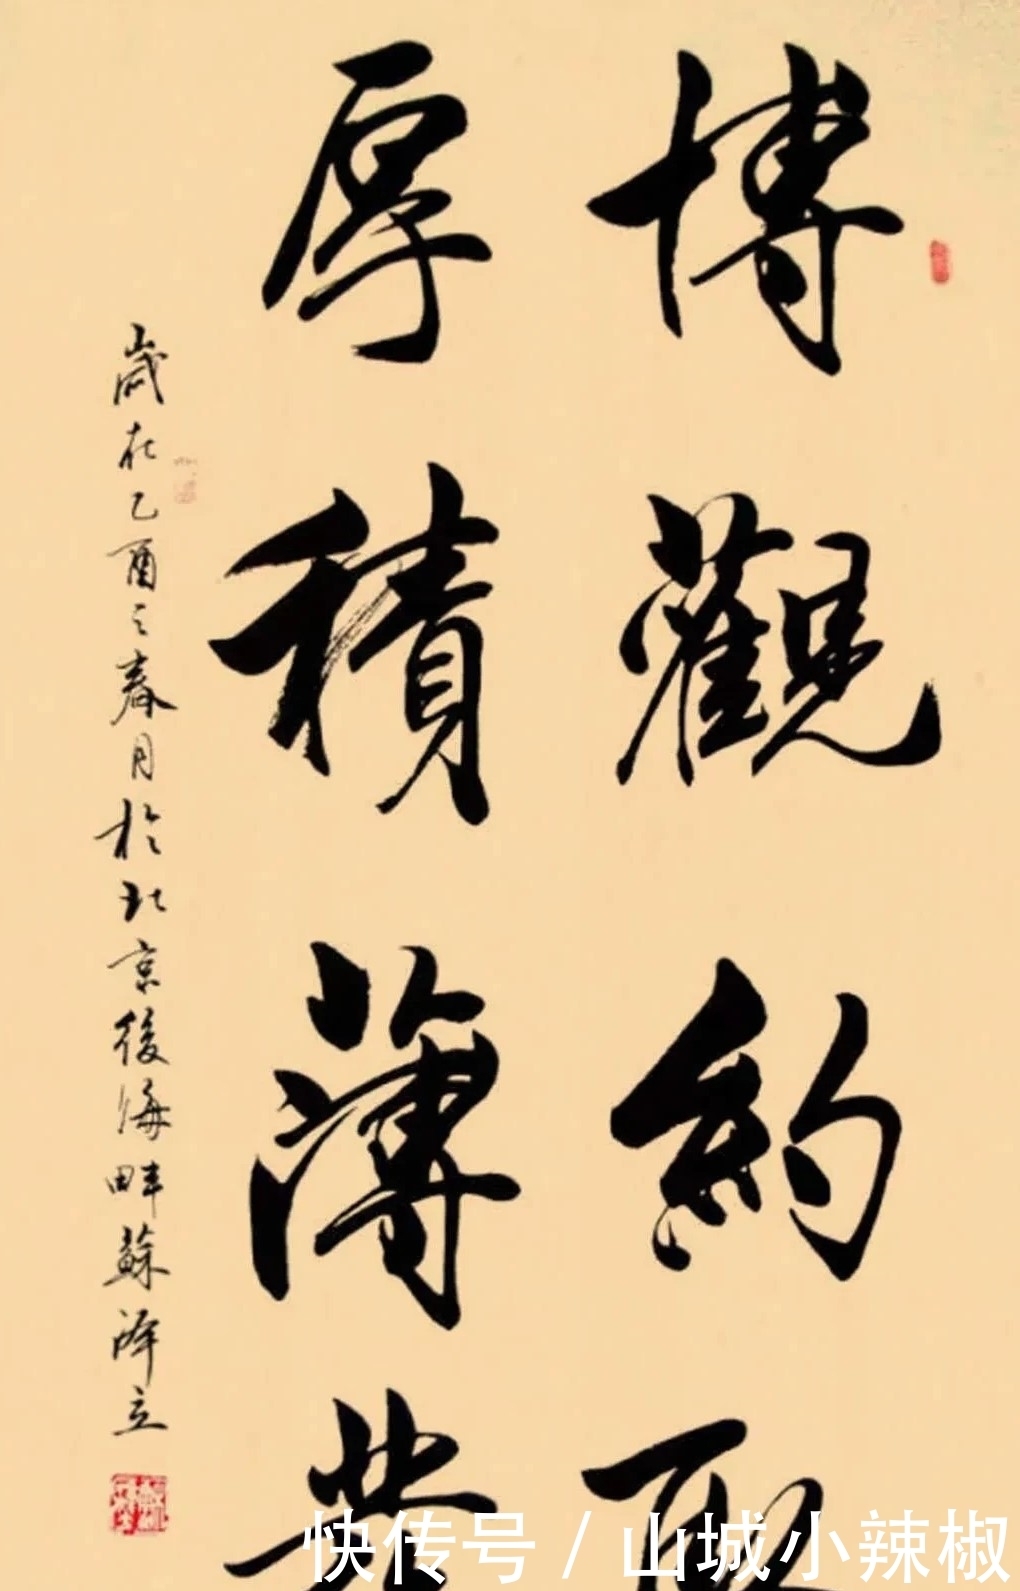 博觀約取
厚積薄發
歲在乙酉之春月於北京後海畔蘇澤立
快传号／山城小辣椒